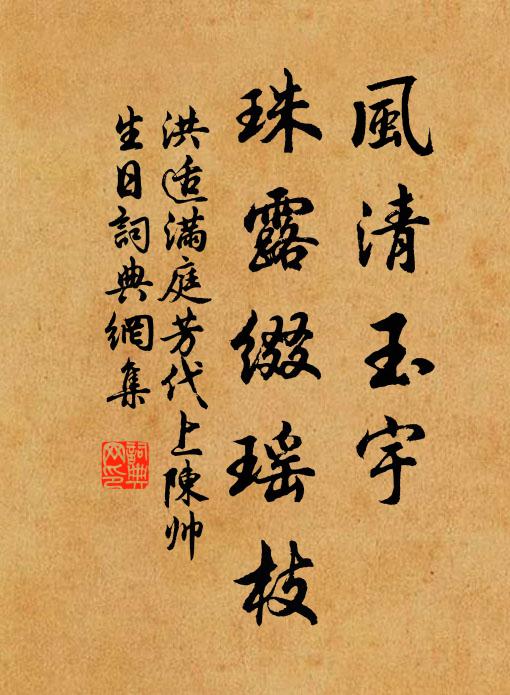 風清玉宇
珠露缀瑶枝
洪适滿庭芳代上陳帅
生日詞典網集
詞典